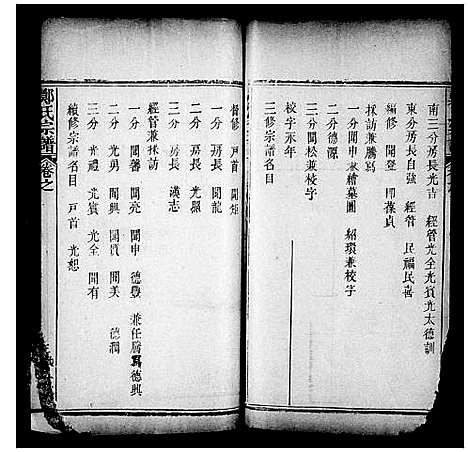 南三分房長光吉 經管光全光賓光太德訓
東分房長自強 經管 民福民喜
編修 開登 即葆貞
採訪兼謄寫
一分開申兼繪墓圖 紹環兼校字
二分德源
三分開松兼校字
校字永年
三修宗譜名目
鄭氏宗譜 卷之
督修 戶首 開炬
一分 房長 開龍
二分 房長 光照
三分 房長 漢志
經管兼採訪
一分 開馨 開亮 開申 德豐 兼任謄寫德興
二分 光勇 開興 開質 開美 德潤
三分 光禮 光賓 光全 開有
續修宗譜名目 戶首 光恕